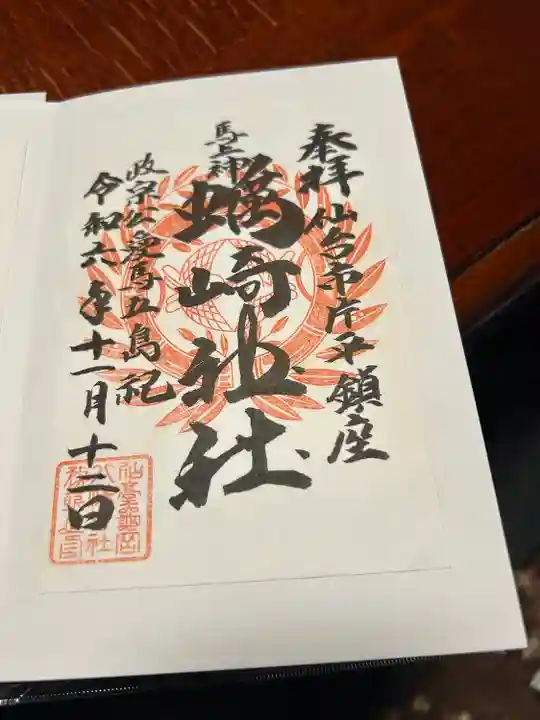 奉拝 仙台市片平鎮座
馬上神
蠣崎神社
政宗公愛馬五島祀
令和六年十一月十二日